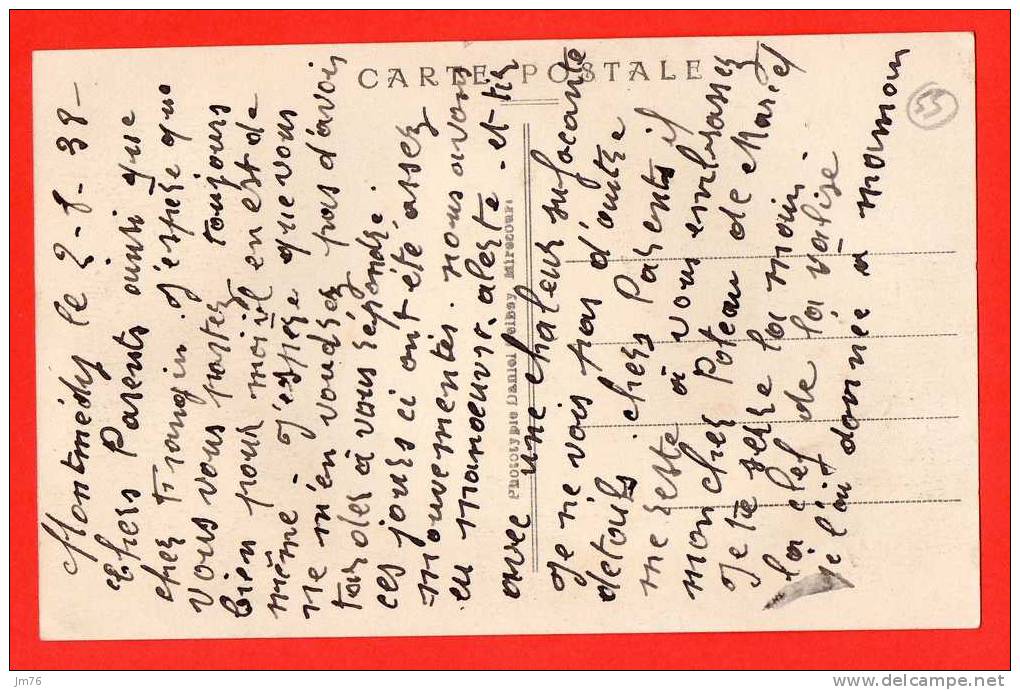 CARTE POSTALE
Montmédy le 2-8-38-
Chers Parents ainsi que
cher frangin. J'espère que
Vous vous portez toujours
bien pour moi il en est de
même - J'espère que vous
ne m'en voudrez pas d'avoir
tardés à vous répondre.
ces jours ci ont été assez
mouvementés. nous avons
eu manoeuvre. alerte - et tir
avec une chaleur sufocante
Je ne vois pas d'autre
detouils chers Parents il
me reste à vous embrasser
mon cher Poteau de Marcel
Je te serre la main
la clef de la valise
je l'ai donnée à maman
Phototypie Daniel Delbey Mirecourt
55
jm76
delcampe.net